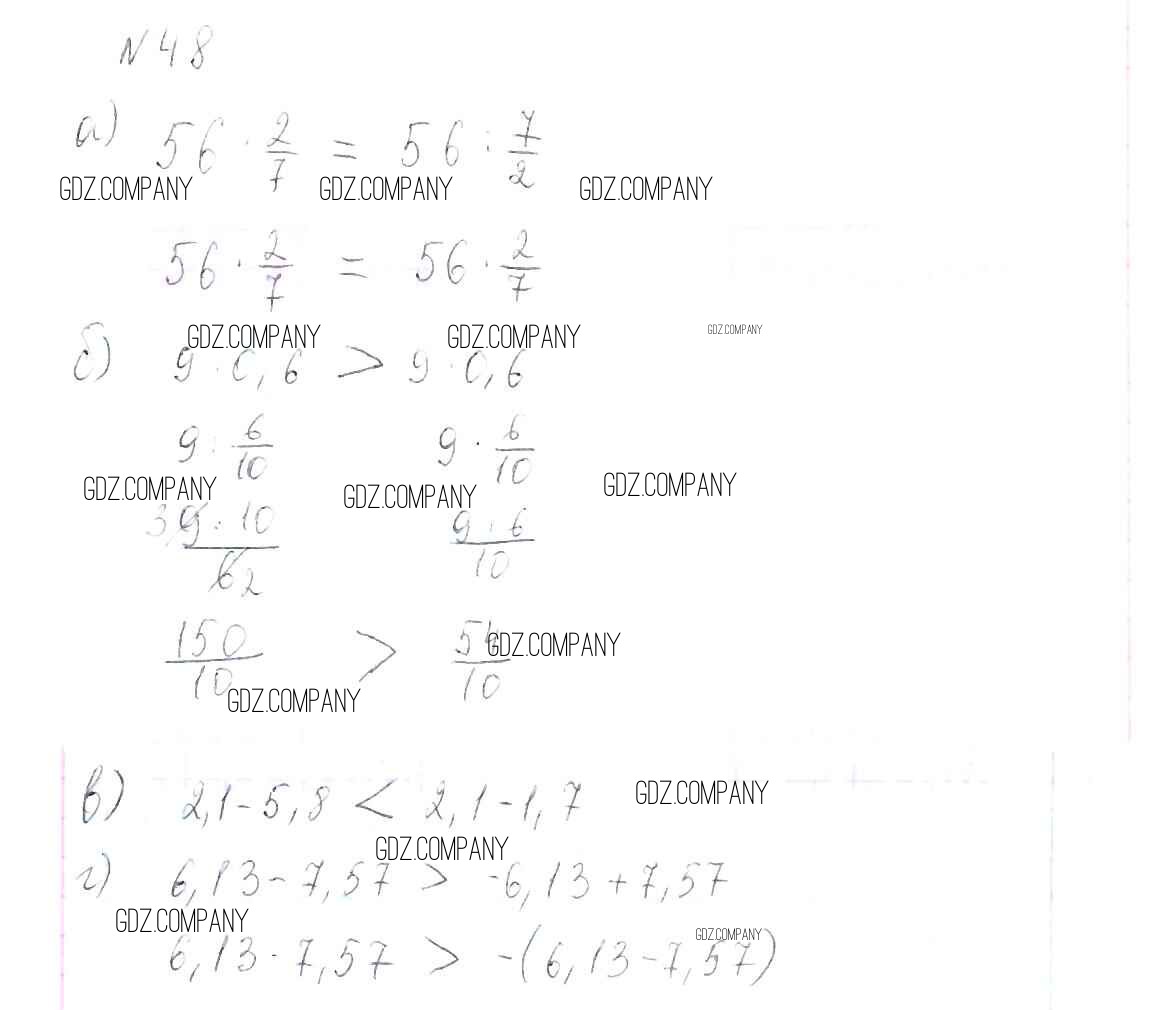 N 48
а) 56 · 2/7 = 56 : 7/2
GDZ.COMPANY GDZ.COMPANY GDZ.COMPANY
56 · 2/7 = 56 · 2/7
GDZ.COMPANY GDZ.COMPANY GDZ.COMPANY
б) 9 : 0,6 > 9 · 0,6
9 : 6/10 9 · 6/10
GDZ.COMPANY GDZ.COMPANY GDZ.COMPANY
3 9 · 10 / 6 2 9 · 6 / 10
150/10 > 54/10
GDZ.COMPANY
GDZ.COMPANY
в) 2,1 - 5,8 < 2,1 - 1,7
GDZ.COMPANY
GDZ.COMPANY
г) 6,13 - 7,57 > -6,13 + 7,57
GDZ.COMPANY GDZ.COMPANY
6,13 - 7,57 > -(6,13 - 7,57)